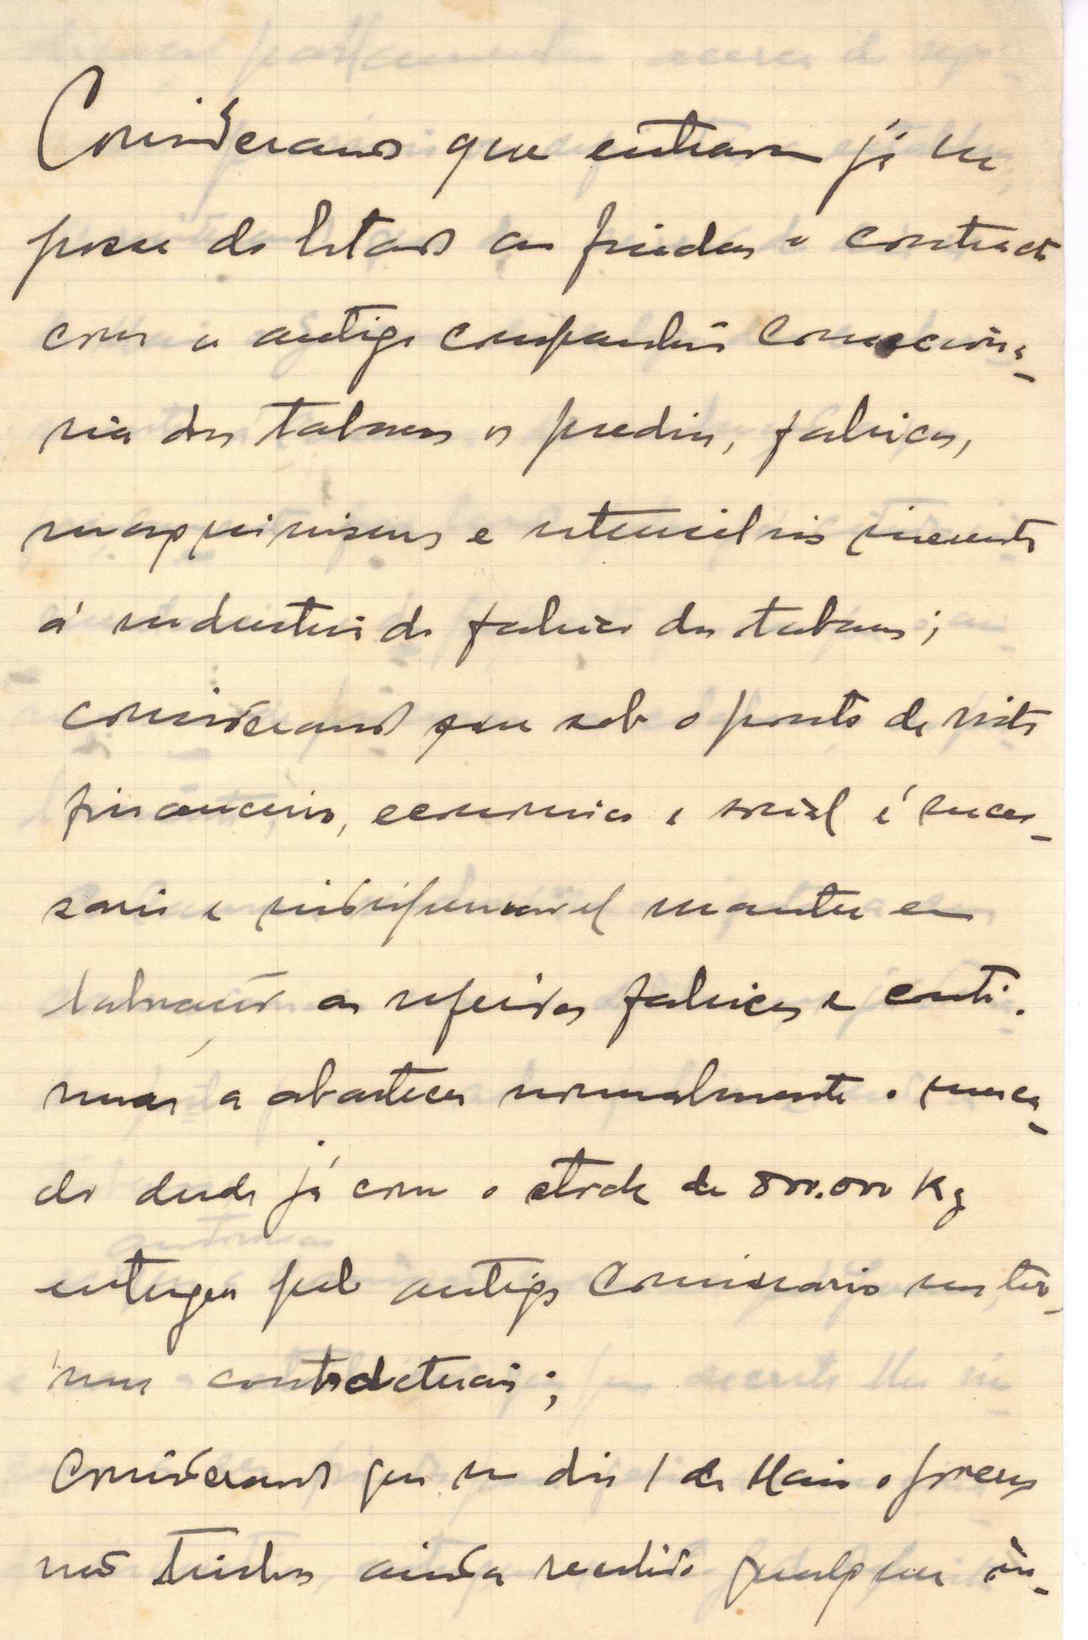 Considerando que entraram já na
posse do Estado ao findar o contracto
com a antiga companhia Concessioná-
ria dos tabacos os predios, fabricas,
maquinismos e utensilios inerentes
á industria do fabrico dos tabacos;
considerando que sob o ponto de vista
financeiro, economico e social é neces-
sario e indispensavel manter em
laboração as referidas fabricas e conti-
nuar a abastecer normalmente o merca-
do desde já com o stock de 800.000 Kg
entregue pelo antigo Comissario nos ter-
mos contractuais;
Considerando que no dia 1 de Maio o
não tinha ainda recebido qualquer in-